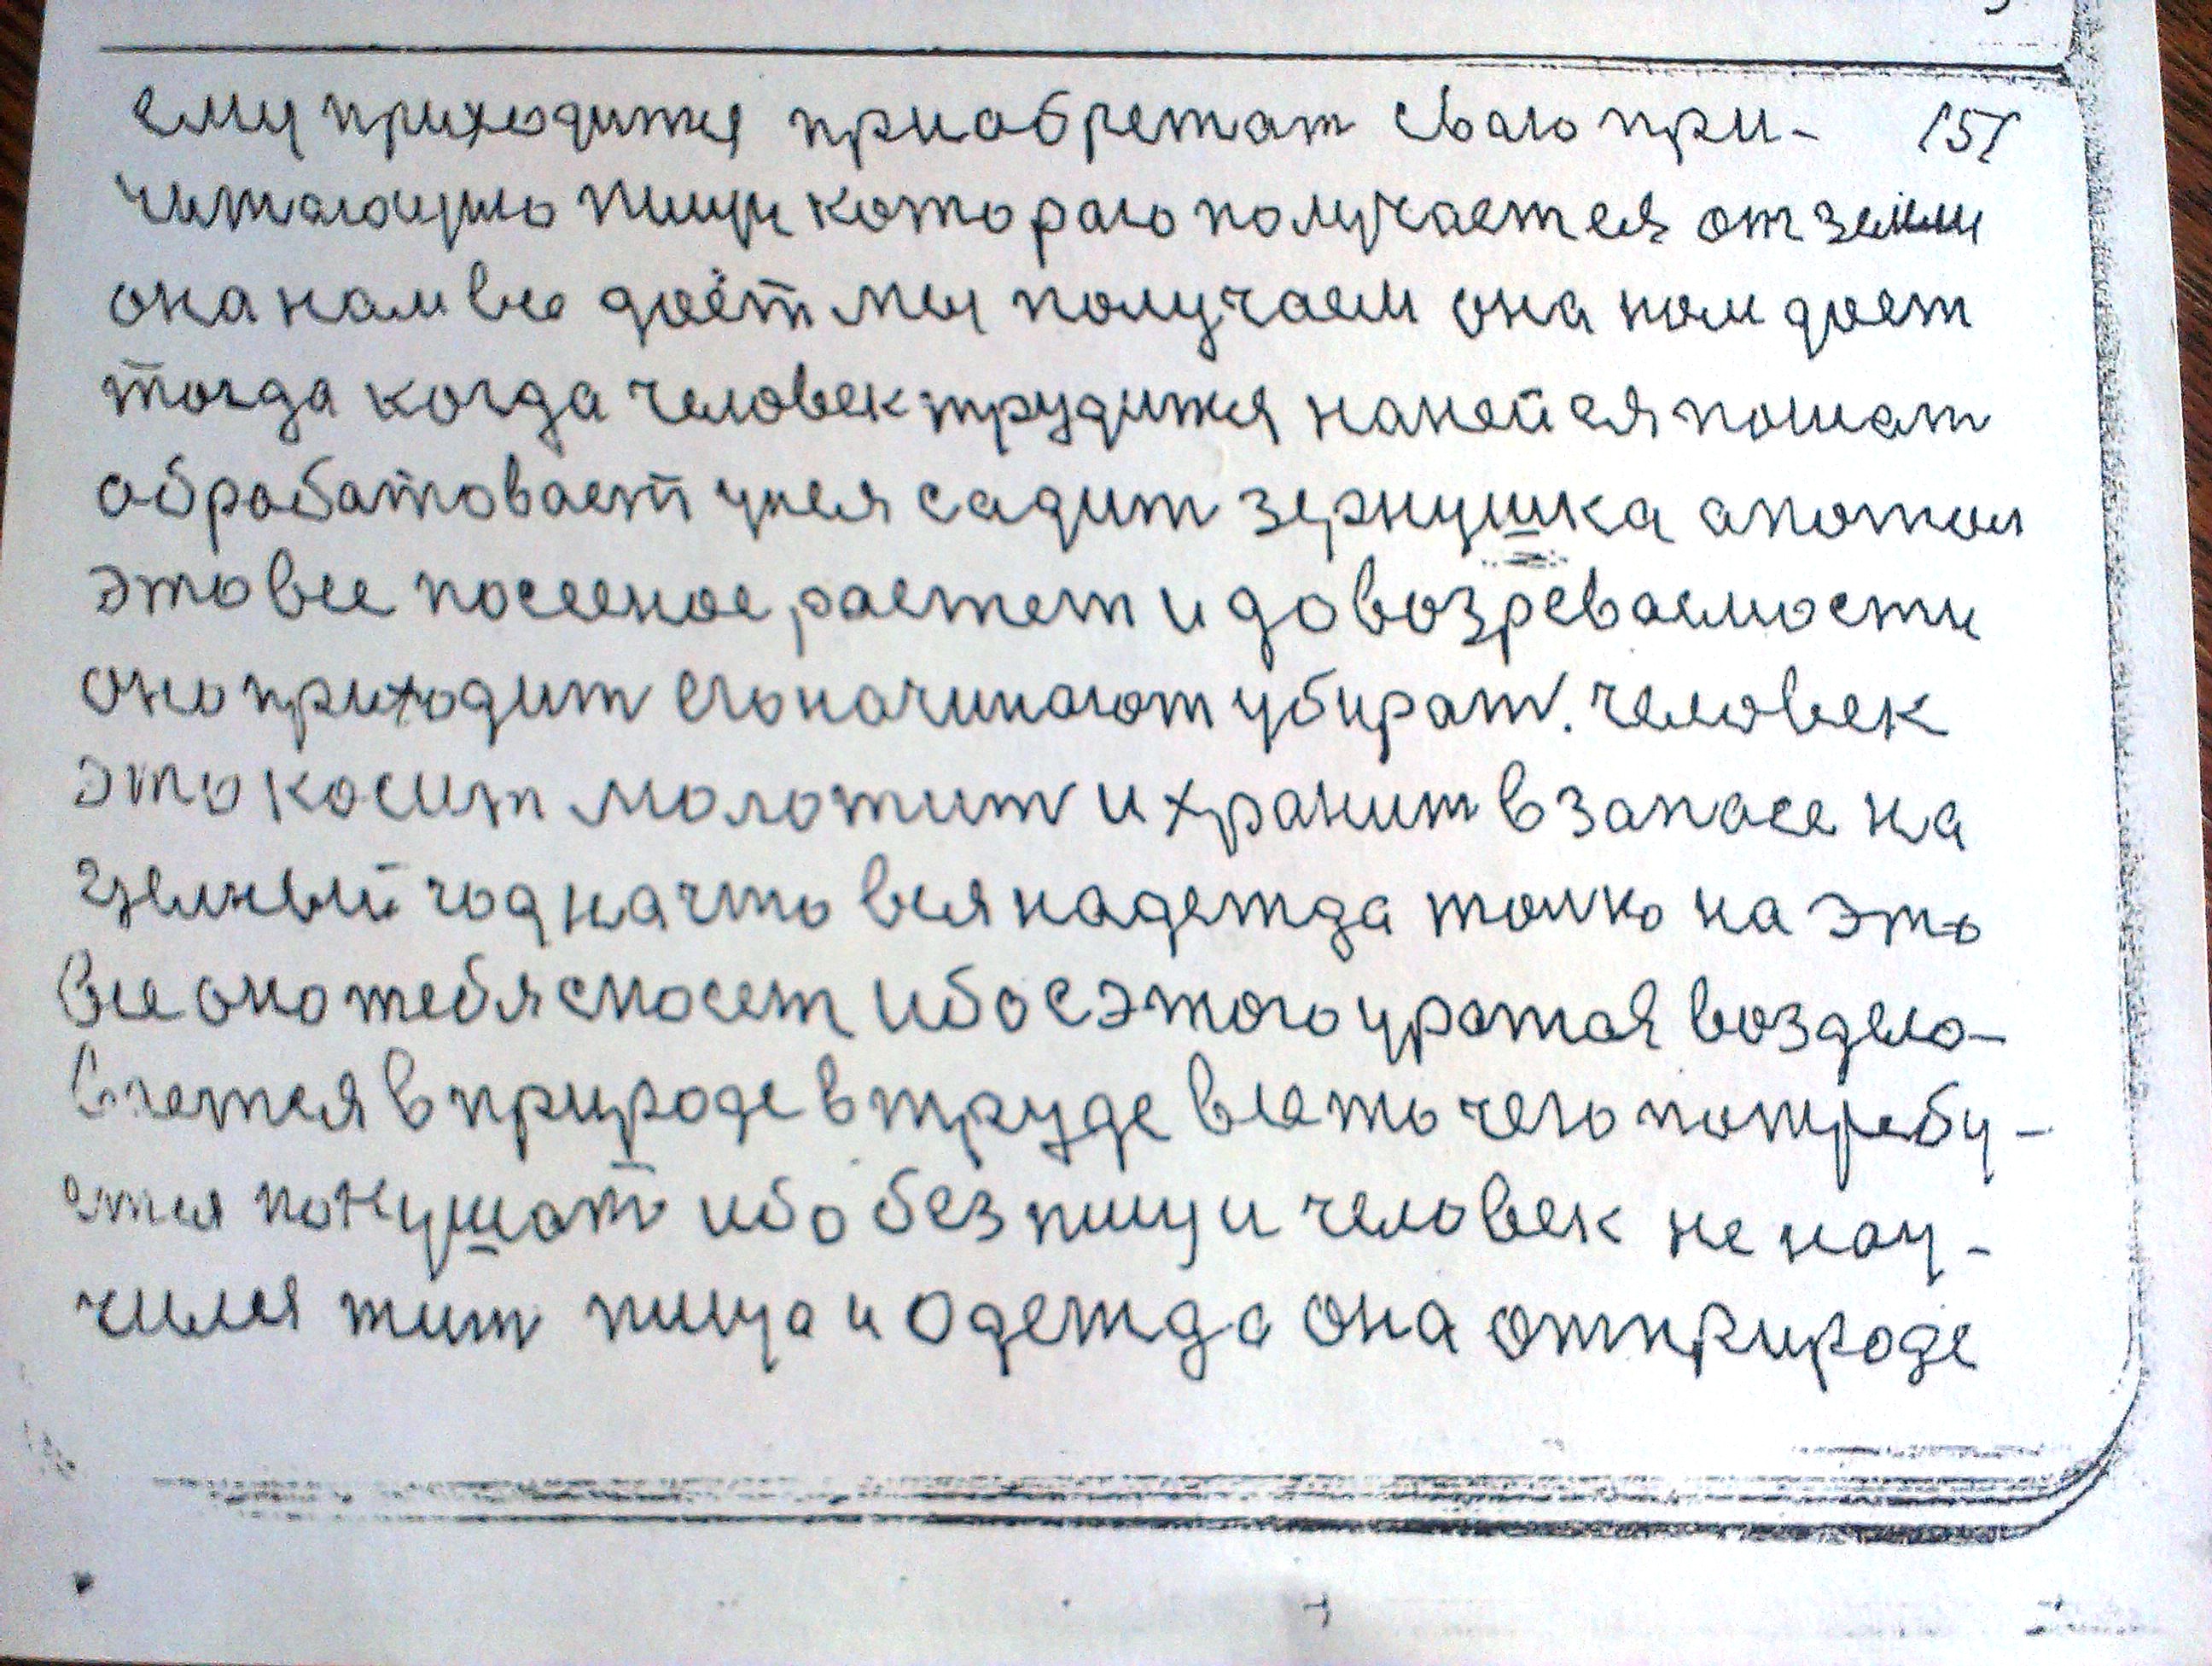 ему приходится приобретат сваю при- 151
читающию пищи котораю получается от земли
она нам все доёт мы получаем она нам доет
тогда когда человек трудится наней ея пошат
обробатовает унея садит зернушка апотом
это все посееное растет и довозреваемости
оно приходит его начинают убират. человек
это косит молотит и хранит в запасе на
целный год на что вся надежда толко на это
все оно тебя сносет ибо с этого уражая воздело-
вается в природе в труде все то чего потребу-
ится покушат ибо без пищи человек не нау-
чился жит пища и одежда она отприроде